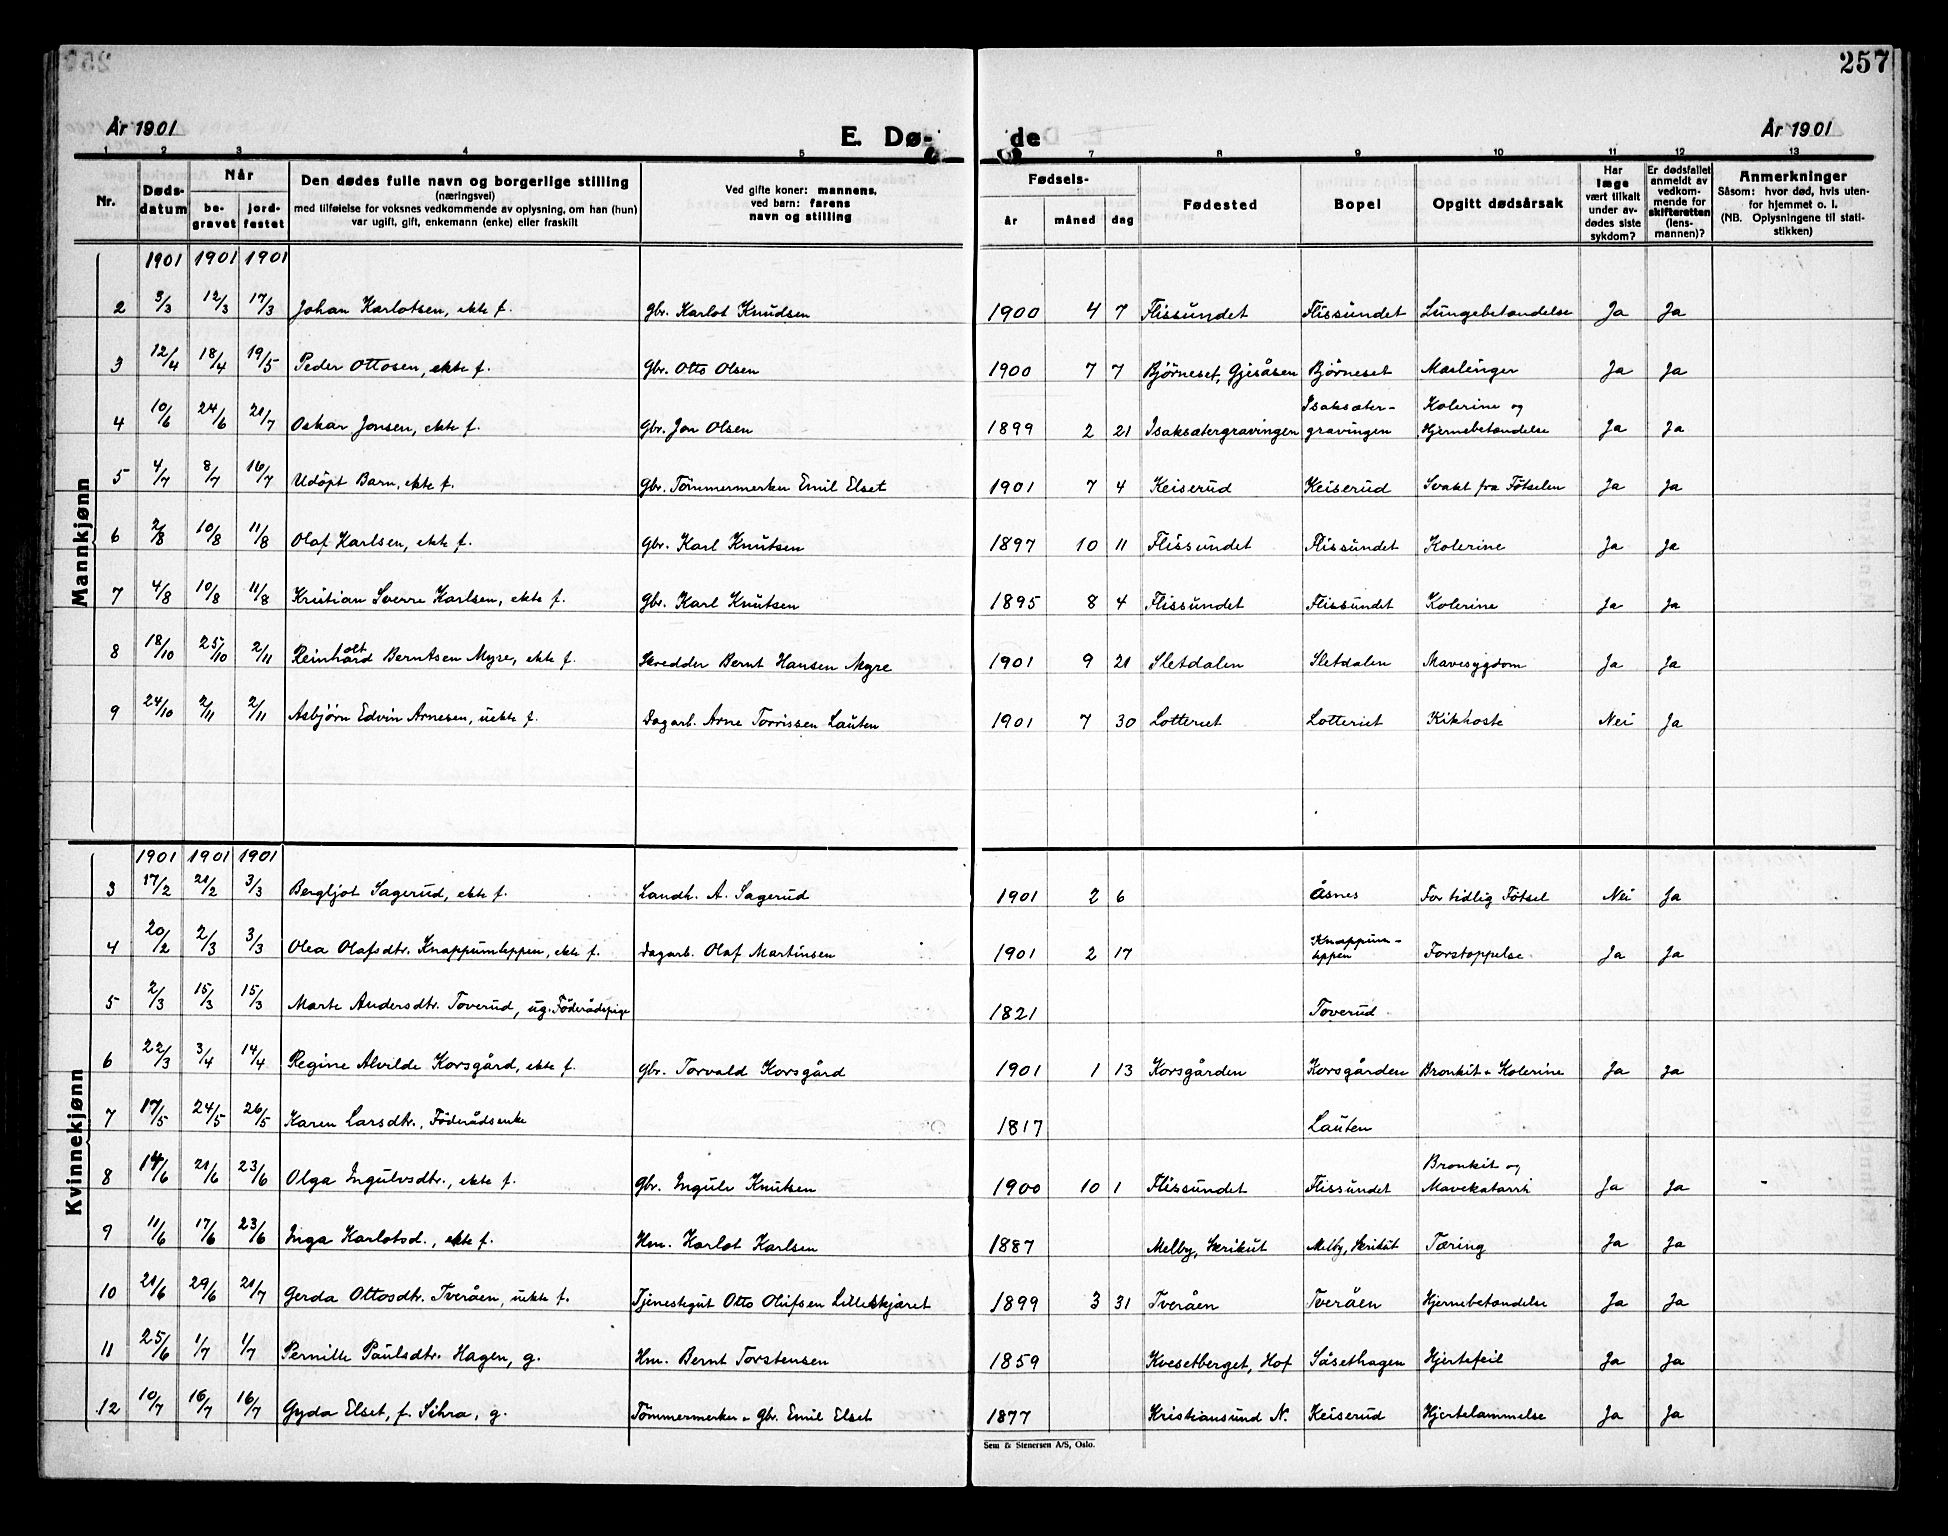 257
År 1901
E. Dø-
de
År 1901
1 2 3 4 5 7 8 9 10 11 12 13
Nr.
Døds-
datum
Når
be-
gravet
jord-
festet
Den dødes fulle navn og borgerlige stilling
(næringsvei)
med tilføielse for voksnes vedkommende av oplysning, om han (hun)
var ugift, gift, enkemann (enke) eller fraskilt
Ved gifte koner: mannens,
ved barn: farens
navn og stilling
Fødsels-
år måned dag
Fødested
Bopel
Opgitt dødsårsak
Har
læge
vært tilkalt
under av-
dødes siste
sykdom?
Er dødsfallet
anmeldt av
vedkom-
mende for
skifteretten
(lens-
mannen)?
Anmerkninger
Såsom: hvor død, hvis uten-
for hjemmet o. l.
(NB. Oplysningene til stati-
stikken)
Mannkjønn
1901 1901 1901
2 3/3 12/3 17/3 Johan Karlotsen, ekte f. Gbr. Karlot Knudsen 1900 4 7 Flissundet Flissundet Lungebetændelse Ja Ja
3 12/4 18/4 19/5 Peder Ottosen, ekte f. Gbr. Otto Olsen 1900 7 7 Bjørneset, Gjesåsen Bjørneset Mæslinger Ja Ja
4 10/6 24/6 21/7 Oskar Jonsen, ekte f. Gbr. Jon Olsen 1899 2 21 Isaksætergravingen Isaksæter-
gravingen Kolerine og
Hjernebetændelse Ja Ja
5 4/7 8/7 16/7 Udöpt Barn, ekte f. Gbr. Tömmermerker Emil Elset 1901 7 4 Keiserud Keiserud Svakt fra Fötselen Ja Ja
6 2/8 10/8 11/8 Olaf Karlsen, ekte f. Gbr. Karl Knutsen 1897 10 11 Flissundet Flissundet Kolerine Ja Ja
7 4/8 10/8 11/8 Kristian Sverre Karlsen, ekte f. Gbr. Karl Knutsen 1895 8 4 Flissundet Flissundet Kolerine Ja Ja
8 18/10 25/10 2/11 Reinhard olt Berntsen Myre, ekte f. Skredder Bernt Hansen Myre 1901 9 21 Sletdalen Sletdalen Mavesygdom Ja Ja
9 24/10 2/11 2/11 Asbjørn Edvin Arnesen, uekte f. Dagarb. Arne Torrissen Lauten 1901 7 30 Lotteriet Lotteriet Kikhoste Nei Ja
Kvinnekjønn
1901 1901 1901
3 17/2 21/2 3/3 Bergljot Sagerud, ekte f. Landh. A. Sagerud 1901 2 6 Åsnes For tidlig Fötsel Nei Ja
4 20/2 2/3 3/3 Olea Olafsdtr. Knappumteppen, ekte f. Dagarb. Olaf Martinsen 1901 2 17 Knappum-
teppen Forstoppelse Ja Ja
5 2/3 15/3 15/3 Marte Andersdtr. Toverud, ug. Föderådspige 1821 Toverud
6 22/3 3/4 14/4 Regine Alvilde Korsgård, ekte f. Gbr. Torvald Korsgård 1901 1 13 Korsgården Korsgården Bronkit + Kolerine Ja Ja
7 17/5 24/5 26/5 Karen Larsdtr., Föderådsenke 1817 Lauten
8 14/6 21/6 23/6 Olga Ingulvsdtr., ekte f. Gbr. Ingulv Knutsen 1900 10 1 Flissundet Flissundet Bronkit og
Mavekatarrh Ja Ja
9 11/6 17/6 23/6 Inga Karlotsd., ekte f. Hm. Karlot Karlsen 1887 Melby, Skrikut Melby, Skrikut Tæring Ja Ja
10 21/6 29/6 21/7 Gerda Ottosdtr. Tveråen, uekte f. Tjenestegut Otto Olufsen Lilleskjæret 1899 3 31 Tveråen Tveråen Hjernebetændelse Ja Ja
11 25/6 1/7 1/7 Pernille Paulsdtr. Hagen, g. Hm. Bernt Torstensen 1859 Kvesetberget, Hof Såsethagen Hjertefeil Ja Ja
12 10/7 16/7 16/7 Gyda Elset, f. Sihra, g. Tömmermerker + Gbr. Emil Elset 1877 Kristiansund N. Keiserud Hjertelammelse Ja Ja
Sem & Stenersen A/S, Oslo.